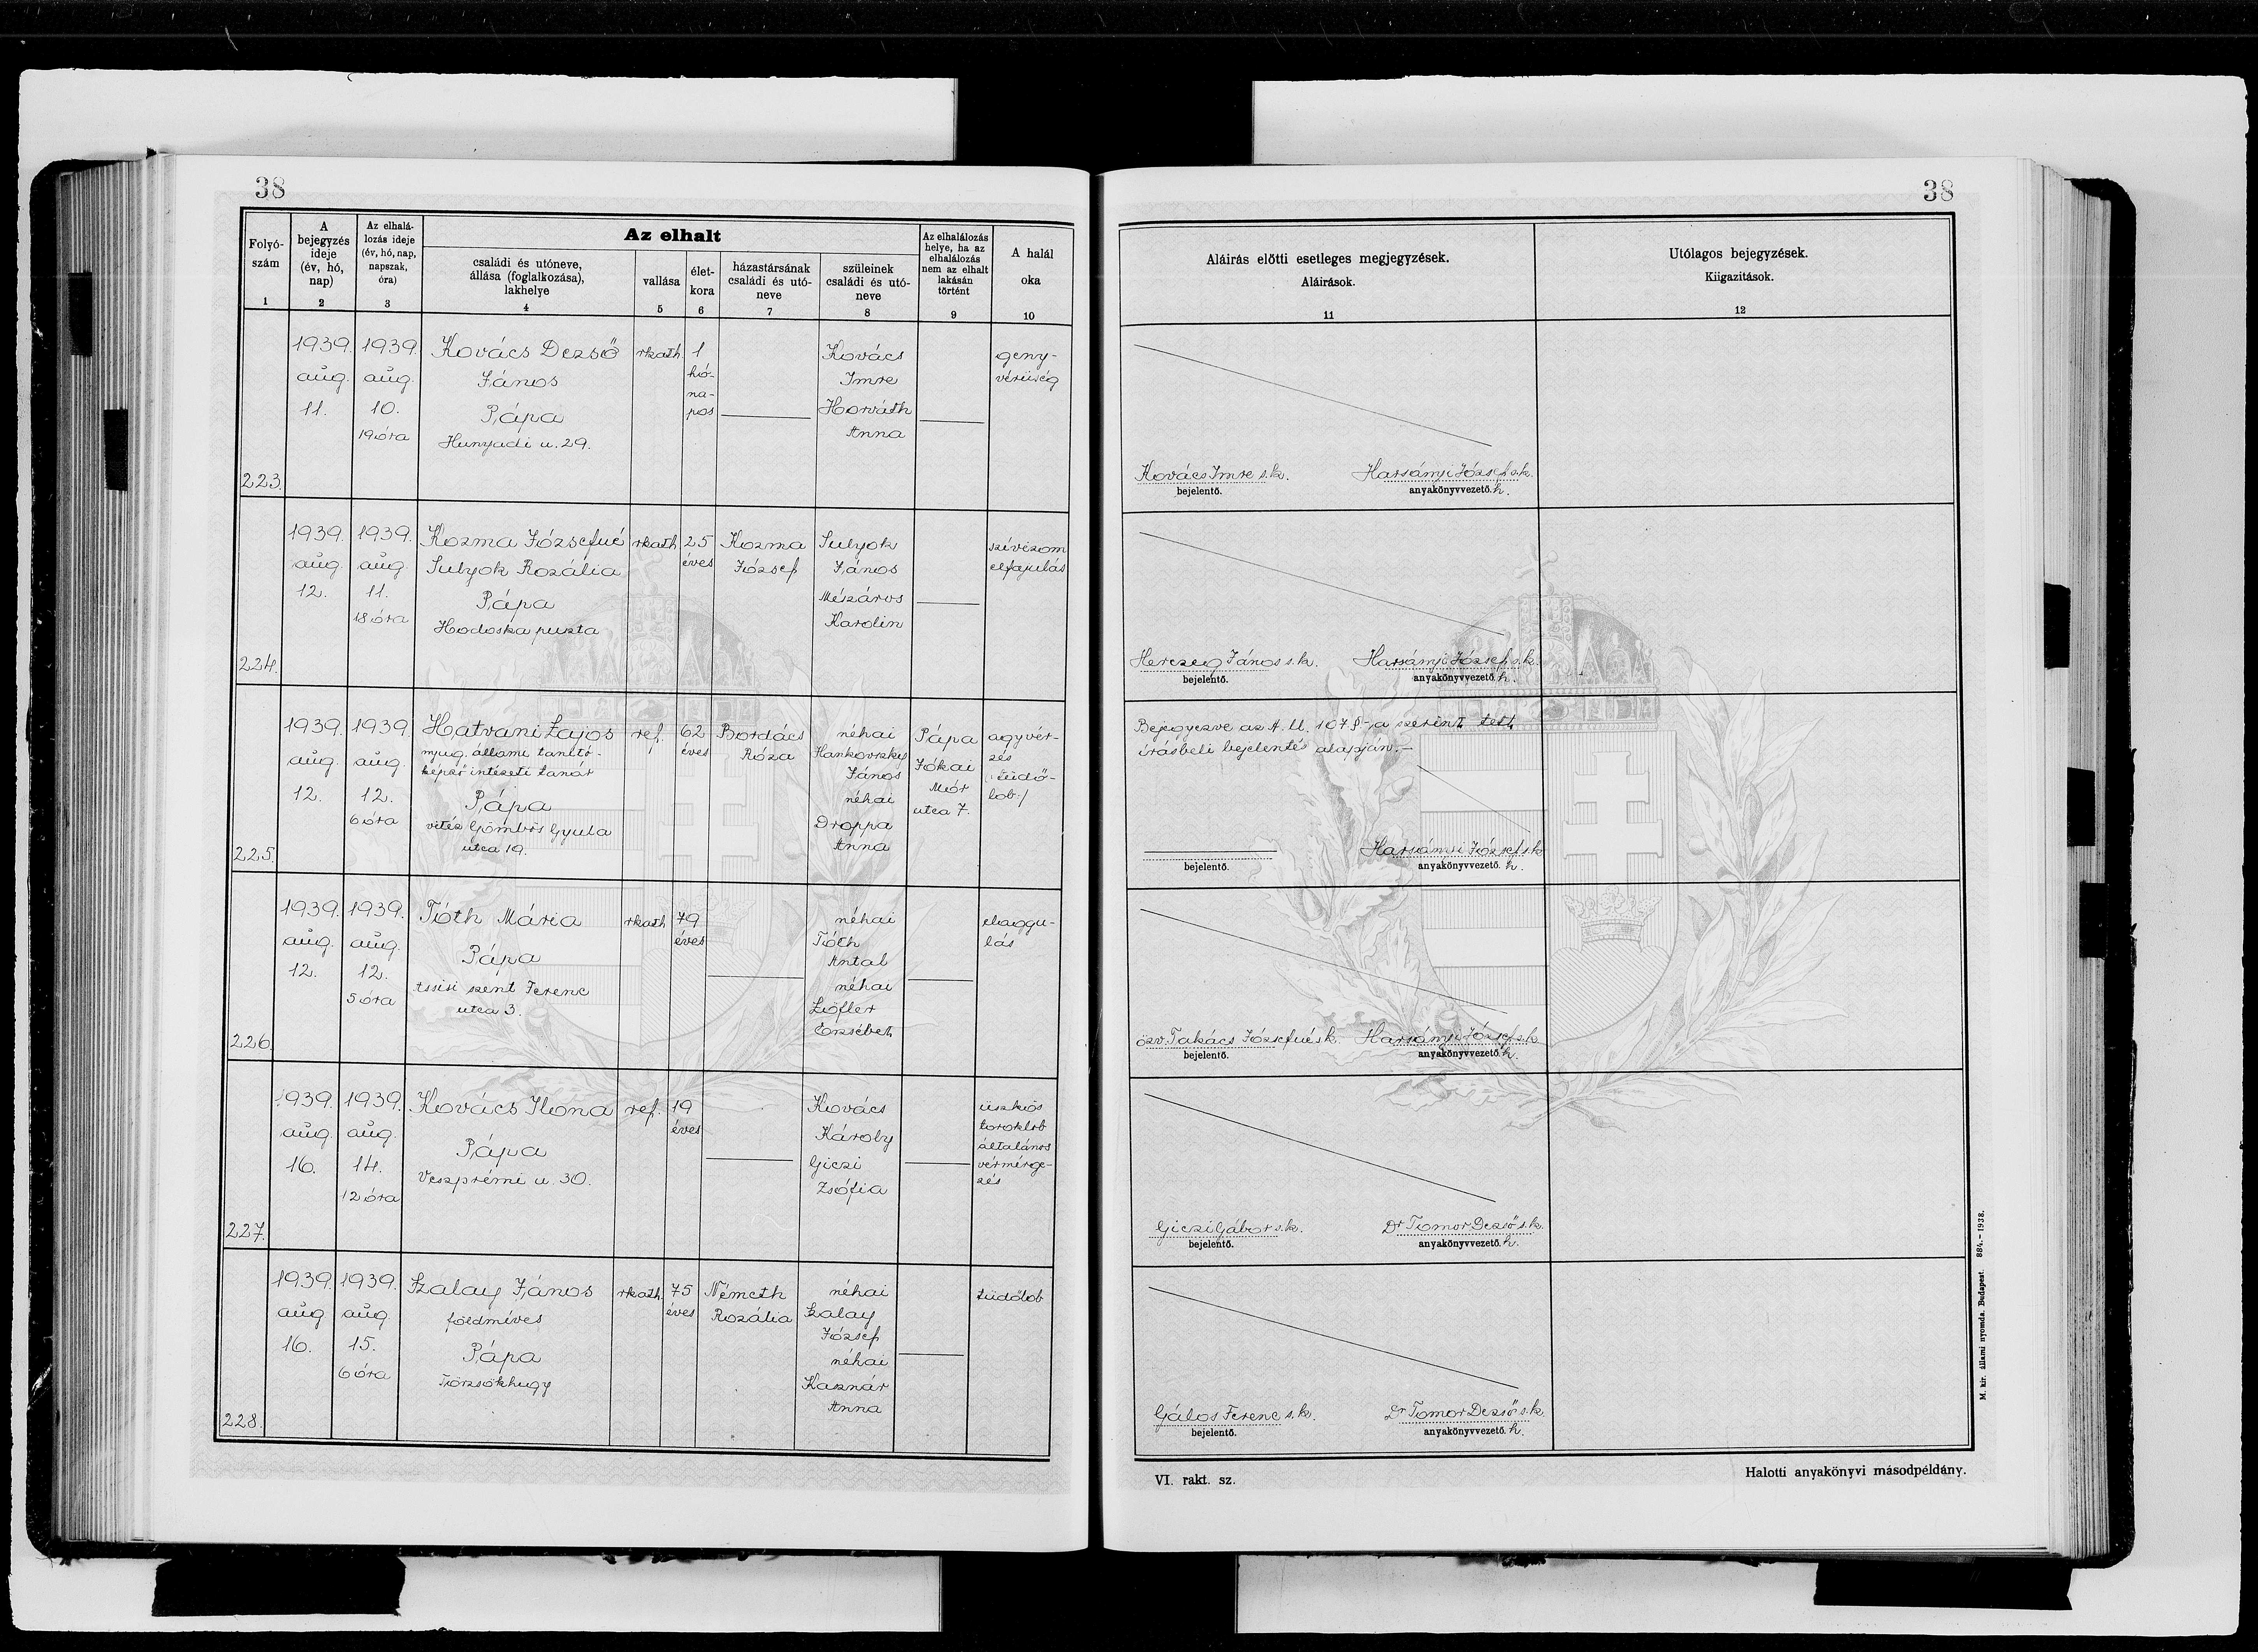 38
Folyó-
szám
1
A
bejegyzés
ideje
(év, hó,
nap)
2
Az elhalá-
lozás ideje
(év, hó, nap,
napszak,
óra)
3
Az elhalt
családi és utóneve,
állása (foglalkozása),
lakhelye
4
vallása
5
élet-
kora
6
házastársának
családi és utó-
neve
7
szüleinek
családi és utó-
neve
8
Az elhalálozás
helye, ha az
elhalálozás
nem az elhalt
lakásán
történt
9
A halál
oka
10
223.
1939.
aug.
11.
1939.
aug.
10.
19 óra
Kovács Dezső
János
Pápa
Hunyadi u. 29.
rkath.
1
hó-
na-
pos
Kovács
Imre
Horváth
Anna
geny-
vérüség
224.
1939.
aug.
12.
1939.
aug.
11.
18 óra
Kozma Józsefné
Sulyok Rozália
Pápa
Hodoska puszta
rkath
25
éves
Kozma
József
Sulyok
János
Mészáros
Karolin
szívizom
elfajulás
225.
1939.
aug.
12.
1939.
aug.
12.
6 óra
Hatvani Lajos
nyug. állami tanító-
képző intézeti tanár
Pápa
vitéz Gömbös Gyula
utca 19.
ref.
62
éves
Bordács
Róza
néhai
Hankovszky
János
néhai
Droppa
Anna
Pápa
Jókai
Mór
utca 7.
agyvér-
zés
(tüdő-
lob:/
226.
1939.
aug.
12.
1939.
aug.
12.
5 óra
Tóth Mária
Pápa
Assisi szent Ferenc
utca 3.
rkath
79
éves
néhai
Tóth
Antal
néhai
Löfler
Erzsébet
elaggu-
lás
227.
1939.
aug.
16.
1939.
aug.
14.
12 óra
Kovács Ilona
Pápa
Veszprémi u. 30.
ref.
19
éves
Kovács
Károly
Giczi
Zsófia
üszkös
toroklob
általános
vérmérge-
zés
228.
1939.
aug
16.
1939.
aug.
15.
6 óra
Szalay János
földmíves
Pápa
Törzsökhegy
rkath.
75
éves
Németh
Rozália
néhai
Szalay
József
néhai
Kasznár
Anna
tüdőlob
38
Aláírás előtti esetleges megjegyzések.
Aláírások.
11
Utólagos bejegyzések.
Kiigazitások.
12
Kovács Imre s.k.
bejelentő.
Harsányi József s.k.
anyakönyvvezető. h.
Herczeg János s.k.
bejelentő.
Harsányi József s.k.
anyakönyvvezető. h.
Bejegyezve az A. U. 107.§-a szerint tett
írásbeli bejelentés alapján.-
bejelentő.
Harsányi József s.k
anyakönyvvezető. h.
özv. Takács Józsefné s.k.
bejelentő.
Harsányi József s.k.
anyakönyvvezető. h.
Giczi Gábor s.k.
bejelentő.
Dr Tomor Dezső s.k.
anyakönyvvezető. h.
Gálos Ferenc s.k.
bejelentő.
Dr Tomor Dezső s.k.
anyakönyvvezető. h.
M. kir. állami nyomda. Budapest. 884.-1938.
VI. rakt. sz.
Halotti anyakönyvi másodpéldány.